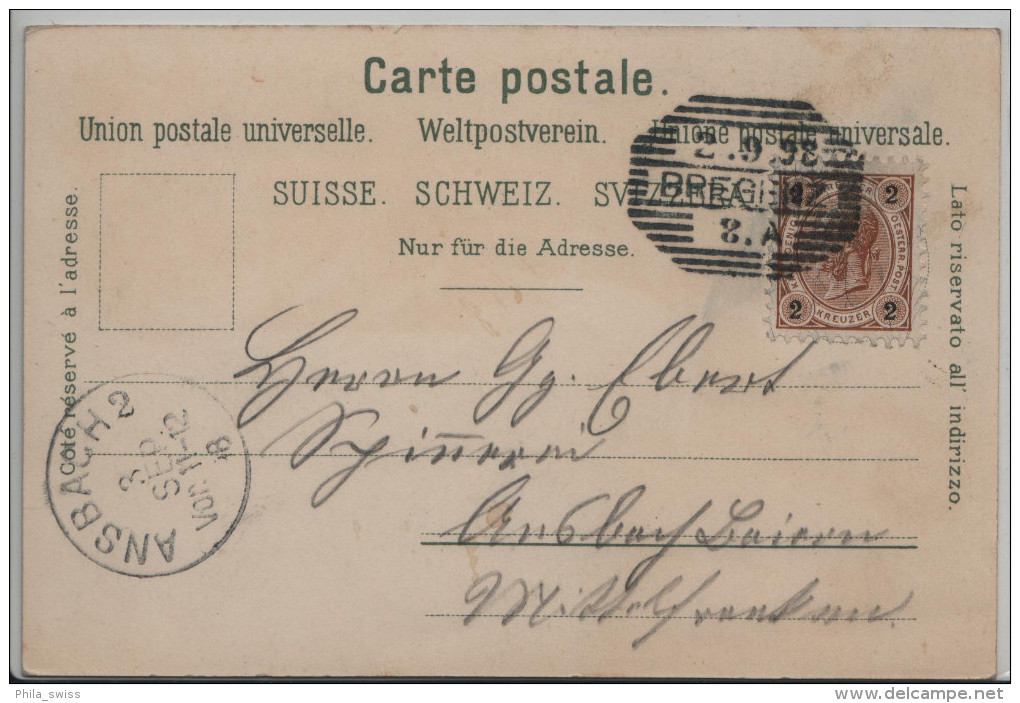 Carte postale.
Union postale universelle. Weltpostverein. Unione postale universale.
SUISSE. SCHWEIZ. SVIZZERA.
Nur für die Adresse.
Côté réservé à l'adresse.
Lato riservato all' indirizzo.
2.9.98
BREGENZ
8.A
2 2
OESTERR. POST
2 KREUZER 2
Herrn Gg. Ebert
Spinnerei
Ansbach Baiern
Mittelfranken.
ANSBACH 2
3
SEP
Vor. 11-12
98
Phila_swiss
www.delcampe.net